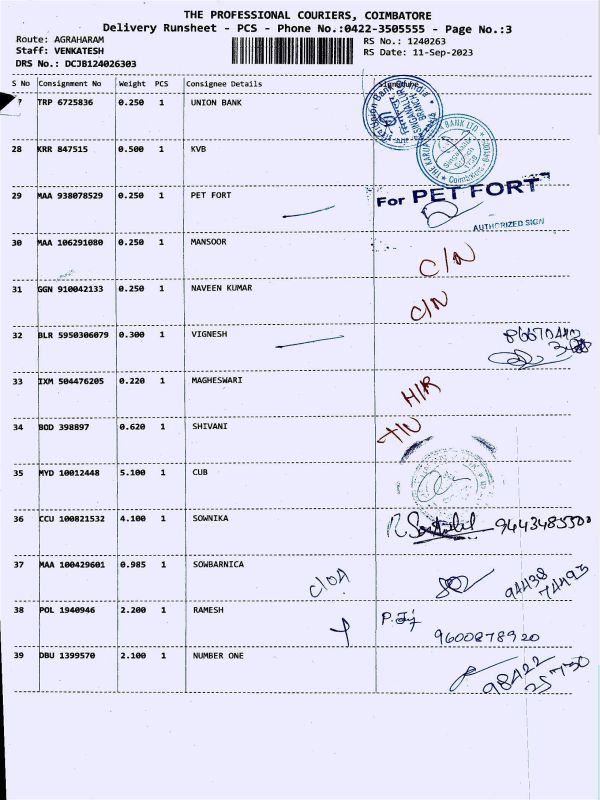 THE PROFESSIONAL COURIERS, COIMBATORE
Delivery Runsheet - PCS - Phone No.:0422-3505555 - Page No.:3
Route: AGRAHARAM RS No.: 1240263
Staff: VENKATESH RS Date: 11-Sep-2023
DRS No.: DCJB124026303
S No Consignment No Weight PCS Consignee Details Signature
7 TRP 6725836 0.250 1 UNION BANK
28 KRR 847515 0.500 1 KVB
29 MAA 938078529 0.250 1 PET FORT For PET FORT
AUTHORIZED SIGN
30 MAA 106291080 0.250 1 MANSOOR C/N
31 GGN 910042133 0.250 1 NAVEEN KUMAR C/N
32 BLR 5950306079 0.300 1 VIGNESH
33 IXM 504476205 0.220 1 MAGHESWARI H/R
34 BOD 398897 0.620 1 SHIVANI
35 MYD 10012448 5.100 1 CUB
36 CCU 100821532 4.100 1 SOWNIKA 9443485500
37 MAA 100429601 0.985 1 SOWBARNICA 94438
74493
38 POL 1940946 2.200 1 RAMESH 9600878920
39 DBU 1399570 2.100 1 NUMBER ONE 98422
25730